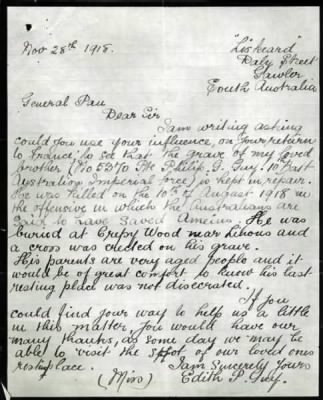 Nov 28th 1918.
"Liskeard"
Daly Street
Gawler
South Australia
General Pau
Dear Sir
I am writing asking
could you use your influence, on your return
to France, to see that the grave of my loved
brother (No 5370 Pte Philip. G. Guy. 10 Batt
Australian Imperial Force) is kept in repair.
He was killed on the 10th of August 1918 in
the offensive in which the Australians are
said to have saved Ameins. He was
buried at Crepy Wood near Lihons and
a cross was erected on his grave.
His parents are very aged people and it
would be of great comfort to know his last
resting place was not discerated.
If you
could find your way to help us a little
in this matter, you would have our
many thanks, as some day we may be
able to visit the spot of our loved ones
resting place.
I am Sincerely Yours
(Miss) Edith P. Guy.